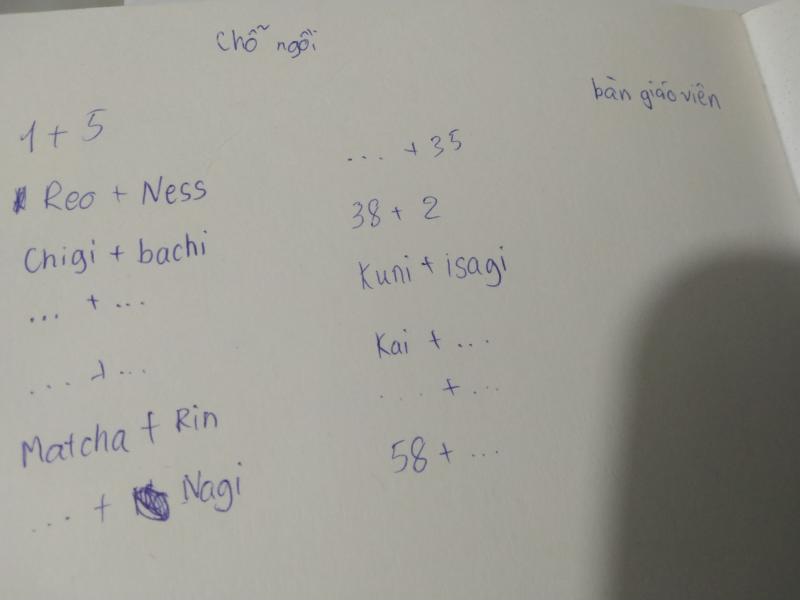 Chỗ ngồi
bàn giáo viên
1 + 5
Reo + Ness
Chigi + bachi
... + ...
... + ...
Matcha + Rin
... + Nagi
... + 35
38 + 2
Kuni + isagi
Kai + ...
... + ...
58 + ...